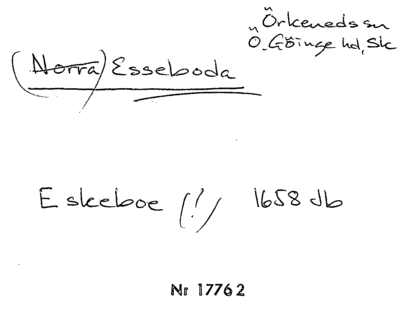 Örkeneds sn
Ö. Göinge hd, Sk
(Norra) Esseboda
Eskeboe (!) 1658 db
Nr 17762